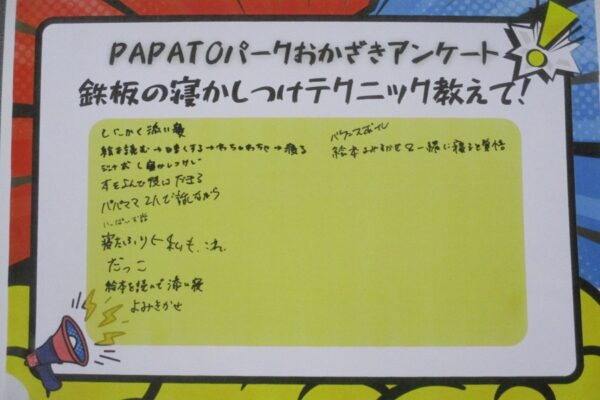 PAPATOパークおかざきアンケート
鉄板の寝かしつけテクニック教えて!
とにかく添い寝
絵本読む→暗くする→わちゃわちゃ→寝る
本をよんで横になる
パパママ2人で話しながら
寝たふり←私も、これ
だっこ
絵本を読んで添い寝
よみきかせ
バランスボール
絵本よみきかせ&一緒に寝ると覚悟